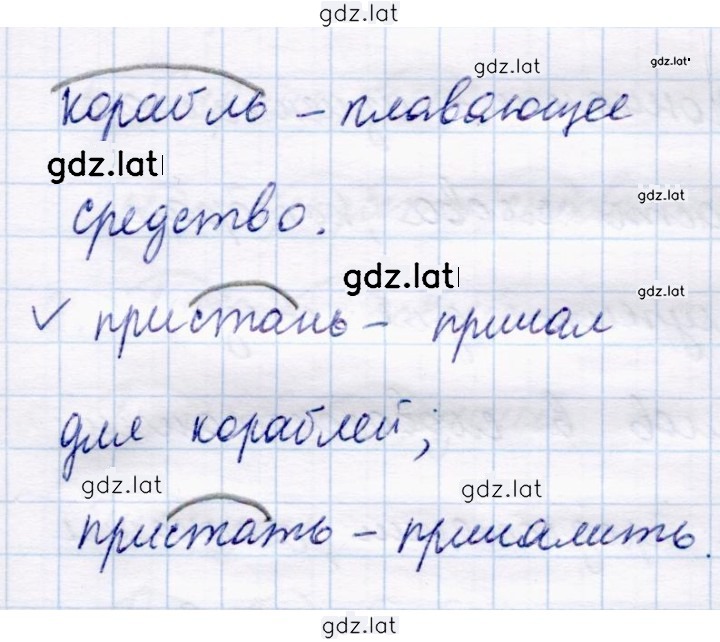 gdz.lat
gdz.lat gdz.lat
корабль – плавающее
gdz.lat
gdz.lat
средство.
gdz.lat
gdz.lat
✓ пристань – причал
для кораблей;
gdz.lat gdz.lat
пристать – причалить.
gdz.lat